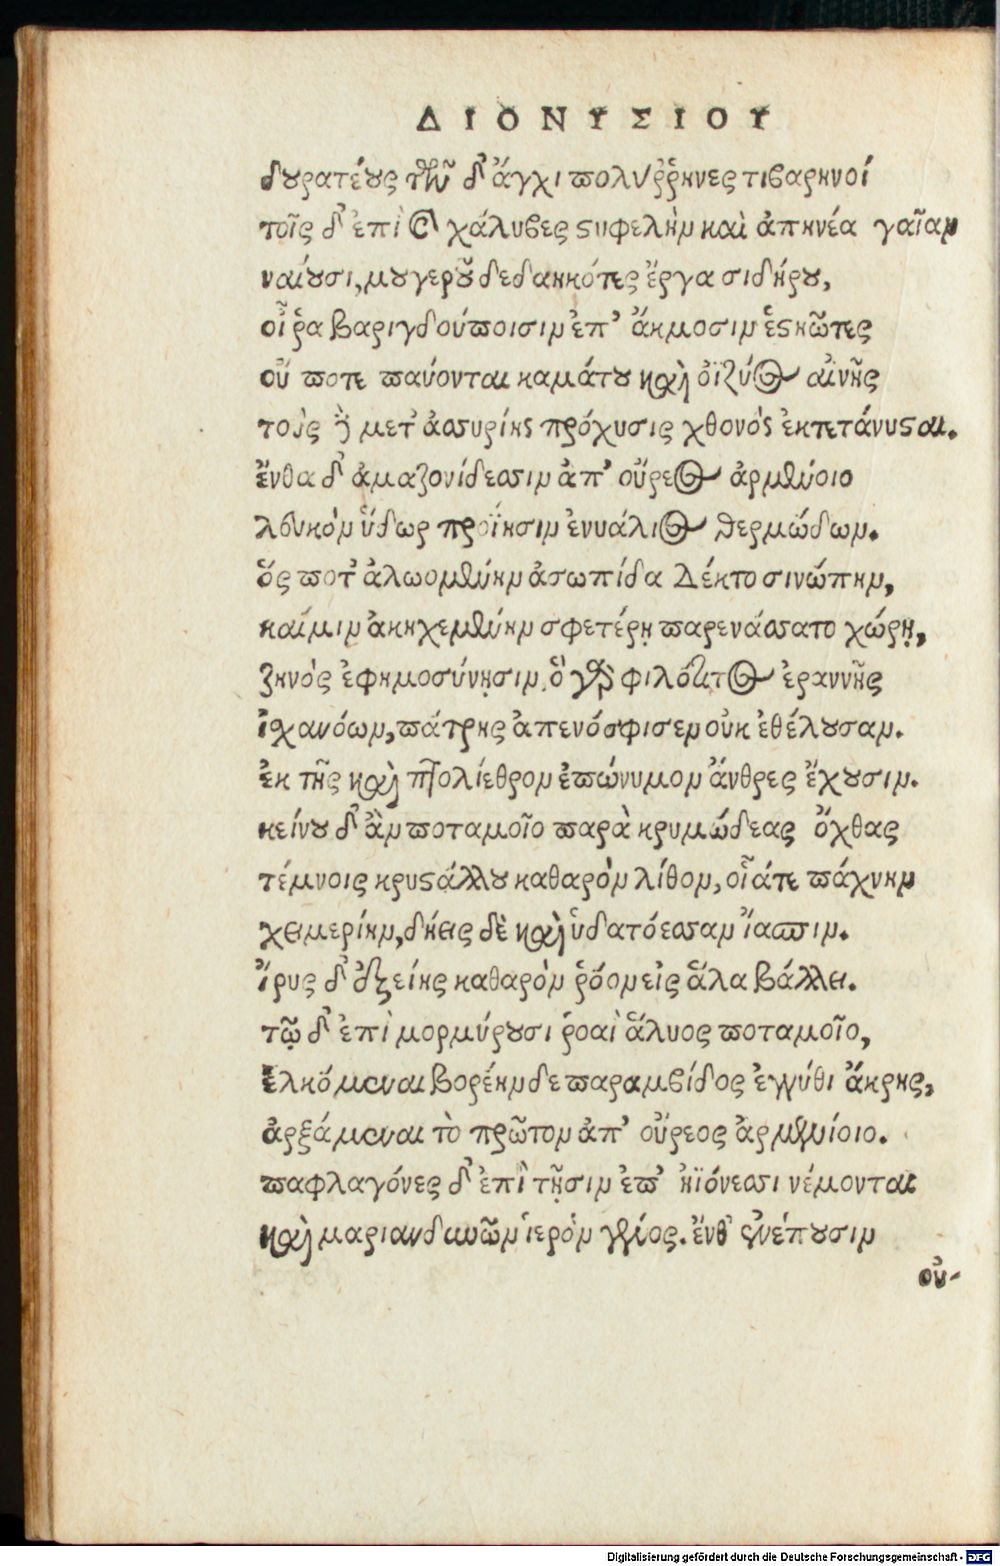 ΔΙΟΝΥΣΙΟΥ
δουρατέους τῶν δ' ἄγχι πολύῤῥηνες τιβαρηνοί
τοῖς δ' ἐπὶ καὶ χάλυβες στυφελὴν καὶ ἀπηνέα γαῖαν
ναίουσι, μογεροῦ δεδαηκότες ἔργα σιδήρου,
οἵ ῥα βαριγδούποισιν ἐπ' ἄκμοσιν ἑστηῶτες
οὔ ποτε παύονται καμάτου καὶ ὀϊζύος αἰνῆς
τοὺς δὲ μετ' ἀσσυρίης πρόχυσις χθονὸς ἐκτετάνυσται.
ἔνθα δ' ἀμαζονίδεσσιν ἀπ' οὔρεος ἀρμενίοιο
λευκὸν ὕδωρ προΐησιν ἐνυάλιος θερμώδων.
ὅς ποτ' ἀλωομένην ἀσωπίδα Δέκτο σινώπην,
καί μιν ἀκηχεμένην σφετέρῃ παρενάσσατο χώρῃ,
ζηνὸς ἐφημοσύνῃσιν, ὃ γὰρ φιλότατος ἐραννῆς
ἰχανόων, πάτρης ἀπενόσφισεν οὐκ ἐθέλουσαν.
ἐκ τῆς καὶ πτολίεθρον ἐπώνυμον ἄνδρες ἔχουσιν.
κείνου δ' ἂν ποταμοῖο παρὰ κρυμώδεας ὄχθας
τέμνοις κρυστάλλου καθαρὸν λίθον, οἷάτε πάχνην
χειμερίην, δήεις δὲ καὶ ὑδατόεσσαν ἴασπιν.
ἶρις δ' ἑξείης καθαρὸν ῥόον εἰς ἅλα βάλλει.
τῷ δ' ἐπὶ μορμύρουσι ῥοαὶ ἅλυος ποταμοῖο,
ἑλκόμεναι βορέην δε παραμβίδος ἐγγύθι ἄκρης,
ἀρξάμεναι τὸ πρῶτον ἀπ' οὔρεος ἀρμενίοιο.
παφλαγόνες δ' ἐπὶ τῇσιν ἐπ' ἠϊόνεσσι νέμονται
καὶ μαριανδυνῶν ἱερὸν γένος. ἔνθ' ἐνέπουσιν
οὐ-
Digitalisierung gefördert durch die Deutsche Forschungsgemeinschaft - DFG